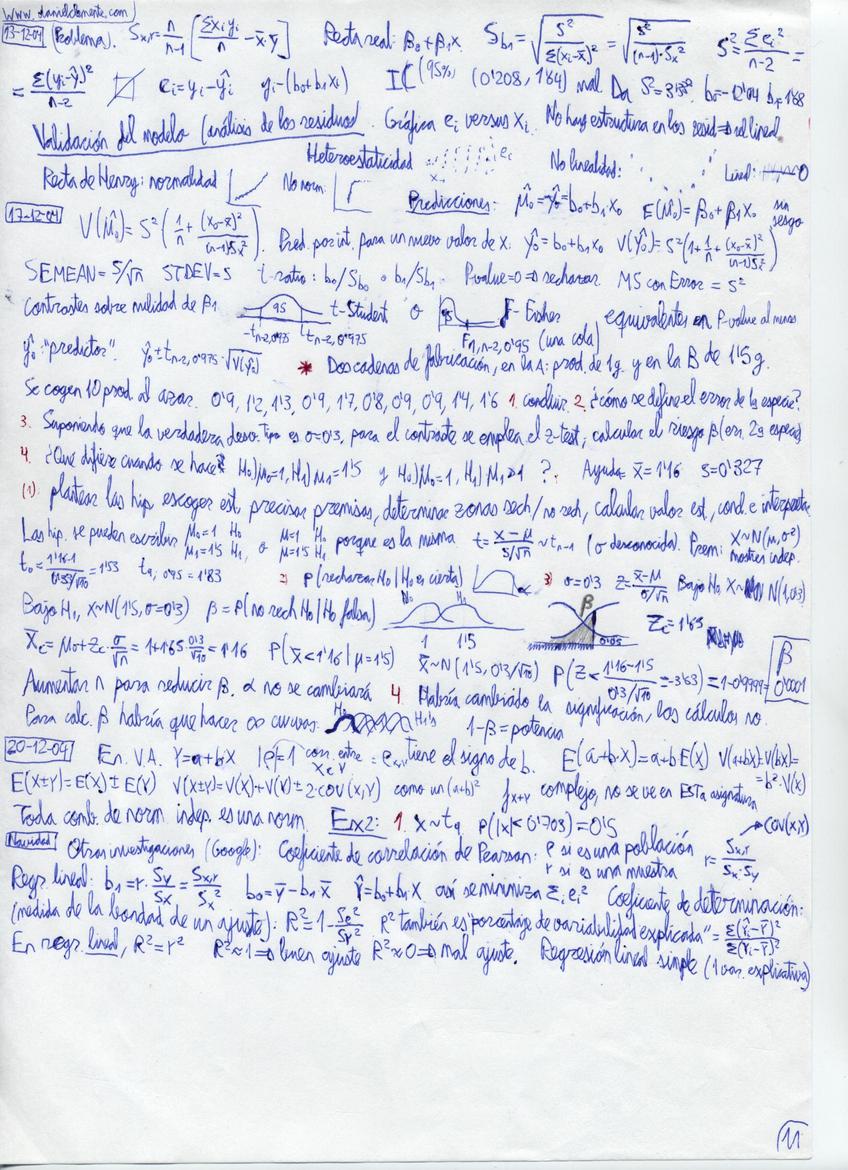 www.danielclemente.com
13-12-04 (Problema). Sx,y = n/(n-1) [Σxiyi/n - x̄·ȳ] Recta real: β0+β1x. Sb1 = √(S²/Σ(xi-x̄)²) = √(S²/((n-1)·Sx²)) S² = Σei²/(n-2) =
= Σ(yi-ŷi)²/(n-2) ei = yi-ŷi yi-(b0+b1xi) IC (95%) (0'208, 1'64) mal Da
Validación del modelo (análisis de los residuos). Gráfica ei versus xi. No hay estructura en los resid ⇒ rel lineal
Recta de Henry: normalidad No norm: Heteroestaticidad ei No linealidad: Lineal: 0
Predicciones: μ̂0 = ŷ0 = b0+b1x0 E(μ̂0) = β0+β1x0 sin sesgo
17-12-04 V(μ̂0) = S²(1/n + (x0-x̄)²/((n-1)Sx²)). Pred. por int. para un nuevo valor de x: ŷ0 = b0+b1x0 V(ŷ0) = S²(1+1/n+(x0-x̄)²/((n-1)Sx²))
SEMEAN = S/√n STDEV = S t-ratio: b0/Sb0 o b1/Sb1 P-value=0 ⇒ rechazar MS con Error = S²
Contrastes sobre nulidad de β1 95 -tn-2,0'975 tn-2,0'975 t-Student o 95 F1,n-2,0'95 F-Fisher (una cola) equivalentes en P-value al menos
ŷ0: "predictor". ŷ0 ± tn-2,0'975·√V(ŷ0) * Dos cadenas de fabricación, en la A: prod. de 1g. y en la B de 1'5g.
Se cogen 10 prod. al azar. 0'9, 1'2, 1'3, 0'9, 1'7, 0'8, 0'9, 0'9, 1'4, 1'6 1. concluir. 2. ¿cómo se define el error de 1ª especie?
3. Suponiendo que la verdadera desv. tipo es σ=0'3, para el contraste se emplea el z-test, calcular el riesgo β (err. 2ª especie)
4. ¿Qué difiere cuando se hace H0)μ0=1, H1)μ1=1'5 y H0)μ0=1, H1)μ1>1 ?. Ayuda: x̄=1'16 S=0'327
(1). plantear las hip, escoger est, precisar premisas, determinar zonas rech/no rech, calcular valor est, cond. e interpretar
Las hip. se pueden escribir μ0=1 H0 μ1=1'5 H1, o μ=1 H0 μ=1'5 H1 porque es la misma t = (x̄-μ)/(S/√n) ~ tn-1 (σ desconocida). Prem: X~N(μ,σ²) mostres indep.
= 1'53 t9, 0'95 = 1'83 2) P(rechazar H0 | H0 es cierta) α 3) σ=0'3 Z = (x̄-μ)/(σ/√n) Bajo H0 X~ N(1,0'3)
Bajo H1, X~N(1'5, σ=0'3) β = P(no rech H0 | H0 falsa) H0 H1 1 1'5 β 0'05 Zc=1'65
X̄c = μ0+Zc·σ/√n = 1+1'65·0'3/√10 = 1'16 P(x̄<1'16 | μ=1'5) x̄~N(1'5, 0'3/√10) P(Z < (1'16-1'5)/(0'3/√10) = -3'63) = 1-0'9999 = β 0'0001
Aumentar n para reducir β. α no se cambiará 4. Habría cambiado la significación, los cálculos no.
Para calc. β habría que hacer ∞ curvas: H0 H1's 1-β = potencia
20-12-04 En V.A. Y=a+b·X |ρ|=1 corr. entre X e Y = ρx,y tiene el signo de b. E(a+b·X) = a+b·E(X) V(a+bX)=V(bX)= =b²·V(X)
E(X±Y) = E(X) ± E(Y) V(X±Y) = V(X)+V(Y) ± 2·COV(X,Y) como un (a+b)² fx+y complejo, no se ve en ESTA asignatura
Toda comb. de norm indep. es una norm. Ex2: 1. X~t9 P(|x|<0'703)=0'5
Navidad Otras investigaciones (Google): Coeficiente de correlación de Pearson: ρ si es una población r si es una muestra r = Sx,y/(Sx·Sy) COV(X,Y)
Regr. lineal: b1 = r·Sy/Sx = Sx,y/Sx² b0 = ȳ-b1x̄ Ŷ=b0+b1X así se minimiza Σei² Coeficiente de determinación:
(medida de la bondad de un ajuste): R² = 1-Se²/Sy² R² también es "porcentaje de variabilidad explicada" = Σ(Ŷi-Ȳ)²/Σ(Yi-Ȳ)²
En regr. lineal, R²=r² R²≈1 ⇒ buen ajuste R²≈0 ⇒ mal ajuste. Regresión lineal simple (1 var. explicativa)
11